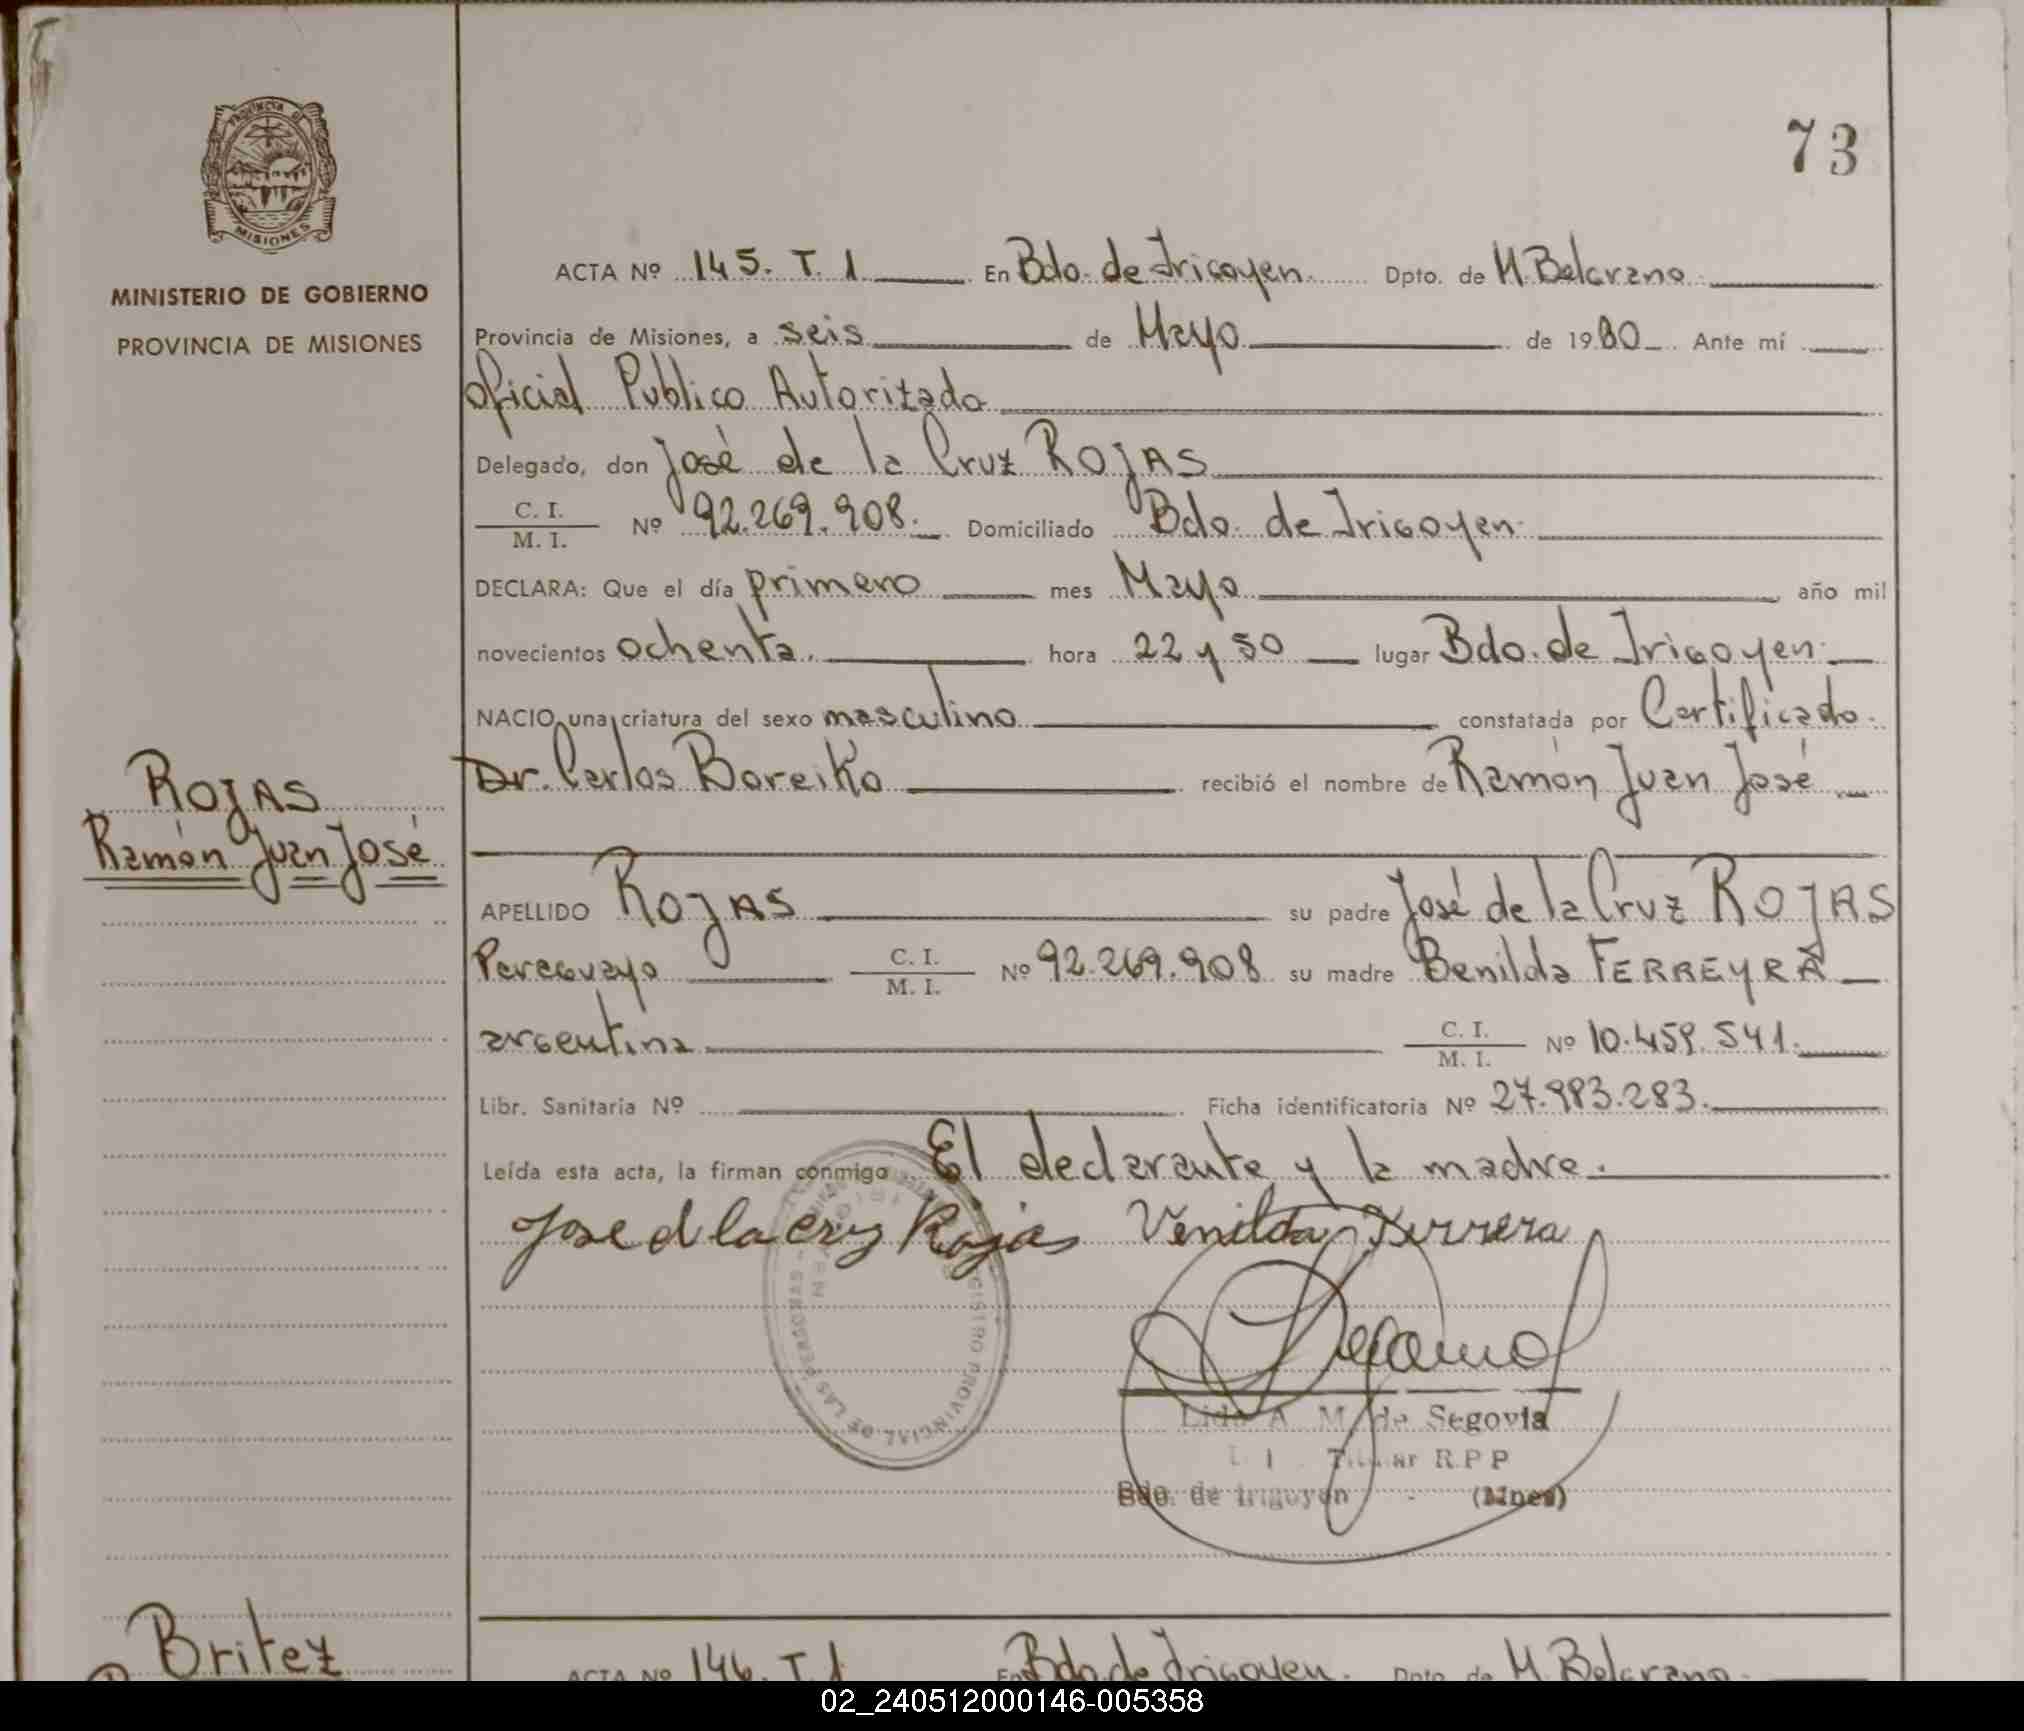 73
PROVINCIA DE
MISIONES
MINISTERIO DE GOBIERNO
PROVINCIA DE MISIONES
ACTA Nº 145. T. 1 En Bdo. de Irigoyen Dpto. de M. Belgrano
Provincia de Misiones, a seis de Mayo de 1980 Ante mí
Oficial Publico Autorizado
Delegado, don José de la Cruz ROJAS
C. I.
M. I. Nº 92.269.908. Domiciliado Bdo. de Irigoyen
DECLARA: Que el día primero mes Mayo año mil
novecientos ochenta. hora 22 y 50 lugar Bdo. de Irigoyen
NACIO una criatura del sexo masculino constatada por Certificado
Dr. Carlos Boreiko recibió el nombre de Ramón Juan José
ROJAS
Ramón Juan José
APELLIDO ROJAS su padre José de la Cruz ROJAS
Paraguayo C. I. M. I. Nº 92.269.908 su madre Benilda FERREYRA
argentina C. I. M. I. Nº 10.459.541.
Libr. Sanitaria Nº Ficha identificatoria Nº 27.983.283.
Leída esta acta, la firman conmigo El declarante y la madre.
Jose d la cruz Rojas Venilda Ferrera
REGISTRO PROVINCIAL DE LAS PERSONAS
A. M. de Segovia
Titular R.P.P
Bdo. de Irigoyen - (Mnes)
Britez
ACTA Nº 146. T. 1 En Bdo. de Irigoyen. Dpto. de M. Belgrano
02_240512000146-005358